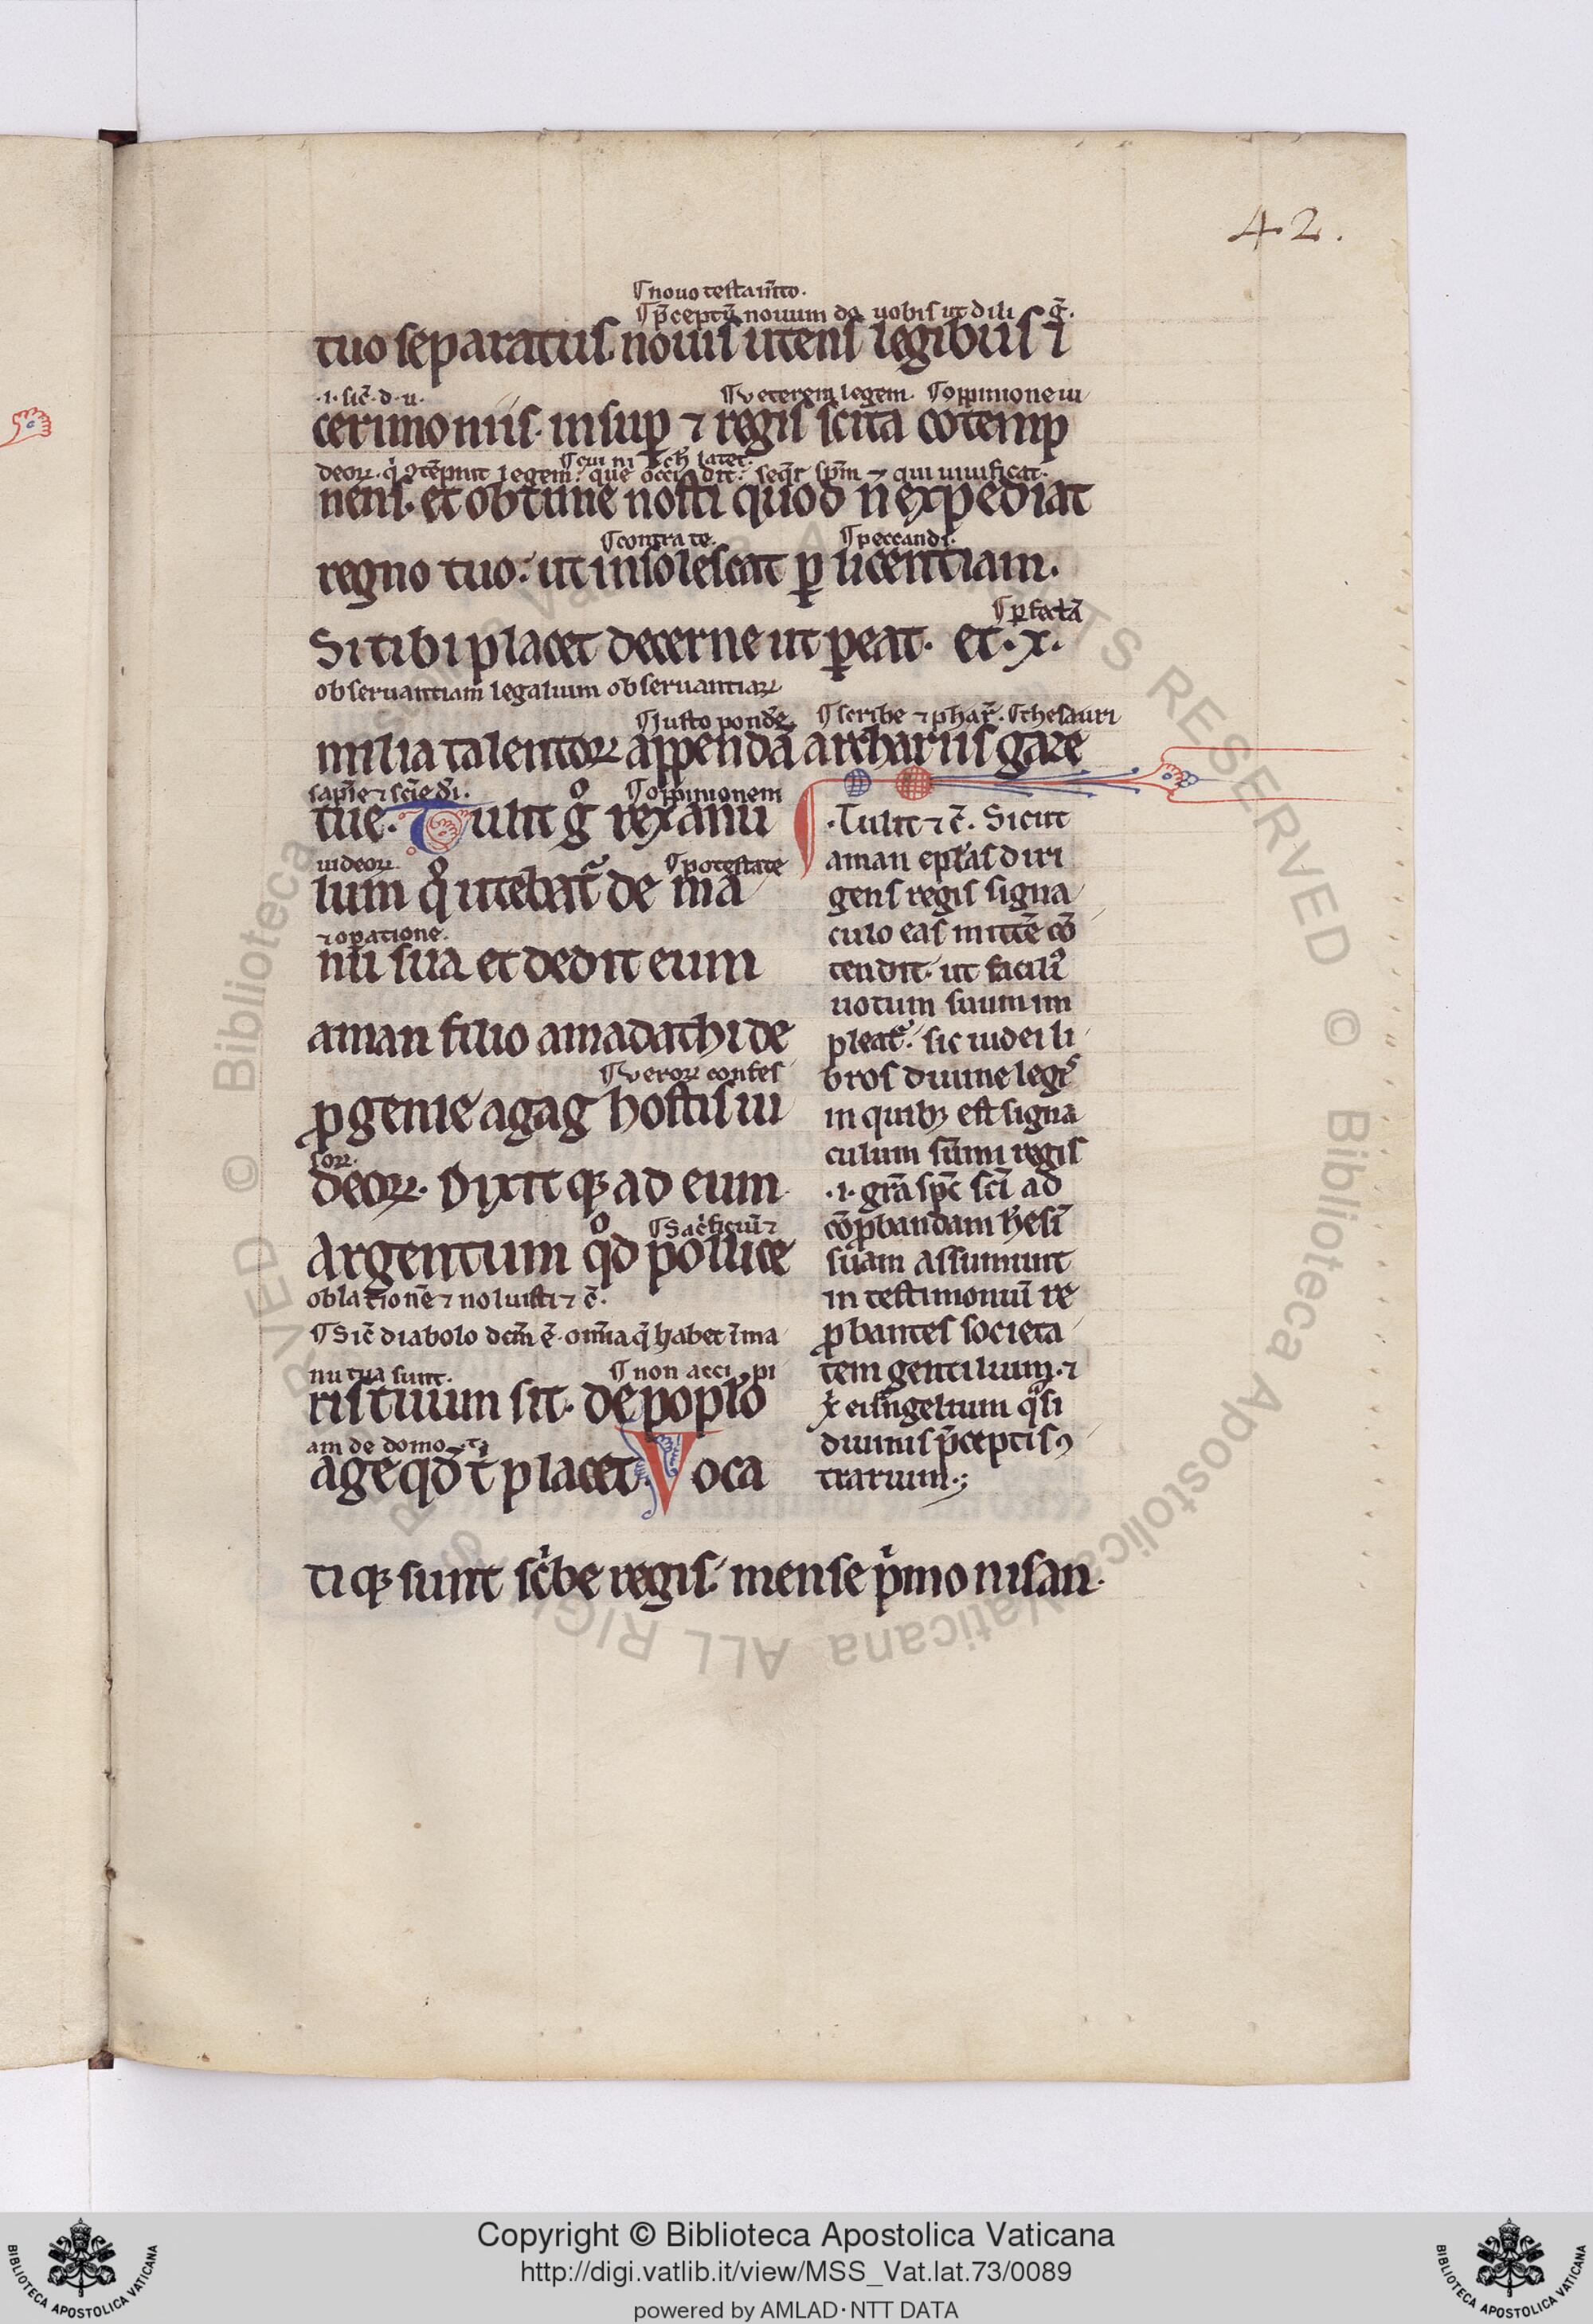 42.
¶ nouo testam̄to.
¶ p̄ceptū nouum do uobis ut dili g̃.
tuo separatus. nouis utens legibus ⁊
.i. sic̄ .d. u.
¶ ueterem legem. ¶ oppinione iu
cerimoniis. insuꝑ ⁊ regis scita cōtemp
deoꝝ. q̇ ꝯtēpnit legem. que occidit. seq̄r sp̄m ⁊ qui uiuificat.
nens. et obtime nosti quod n̄ expediat
¶ contra te. ¶ peccandi.
regno tuo. ut insolescat ꝑ licentiam.
¶ ꝑfectā
Si tibi placet decerne ut ꝑeat. et .x.
obseruantiam legalium obseruantiaꝝ
¶ iusto pondē. ¶ scribe ⁊ phar̄. ¶ thesauri
milia talentoꝝ appendā archariis gaze
sapīe ⁊ scīe dī. ¶ oppinionem
tue. Tulit gͦ rex anu
iudeoꝝ ¶ potestate
lum qͦ utebat᷑ de ma
⁊ oꝑatione.
nu sua et dedit eum
aman filio amadathi de
¶ ueroꝝ confes
ꝓgenie agag hostis iu
soꝝ.
deoꝝ. Dixitqꝫ ad eum
¶ Sac̍ficiū ⁊
Argentum qͦd pollice
oblationē ⁊ noluisti ⁊ c̄.
¶ Sic̄ diabolo dc̄m ē. om̄ia q̄ habet ī ma
nu tua sunt. ¶ non acci pi
ris tuum sit. de poplo
am de domo tͥ
age qd̄ t̄ placet. Voca
tiqꝫ sunt sc̍be regis. mense p̍mo nisan.
.Tulit ⁊ c̄. Sicut
aman epl̄as diri
gens regis signa
culo eas mittē cō
tendit. ut facili᷒
uotum suum im
pleat. sic iudei li
bros diuine legis
in quibꝫ est signa
culum sūmi regis
.i. gr̄a sp̄c sc̄i ad
cōꝓbandam h̄esī
suam assumunt
in testimoniū re
ꝓbantes societa
tem gentilium. ⁊
diuinis p̄ceptis ꝯ
trarium.
Copyright © Biblioteca Apostolica Vaticana
http://digi.vatlib.it/view/MSS_Vat.lat.73/0089
powered by AMLAD·NTT DATA
BIBLIOTECA APOSTOLICA VATICANA
BIBLIOTECA APOSTOLICA VATICANA